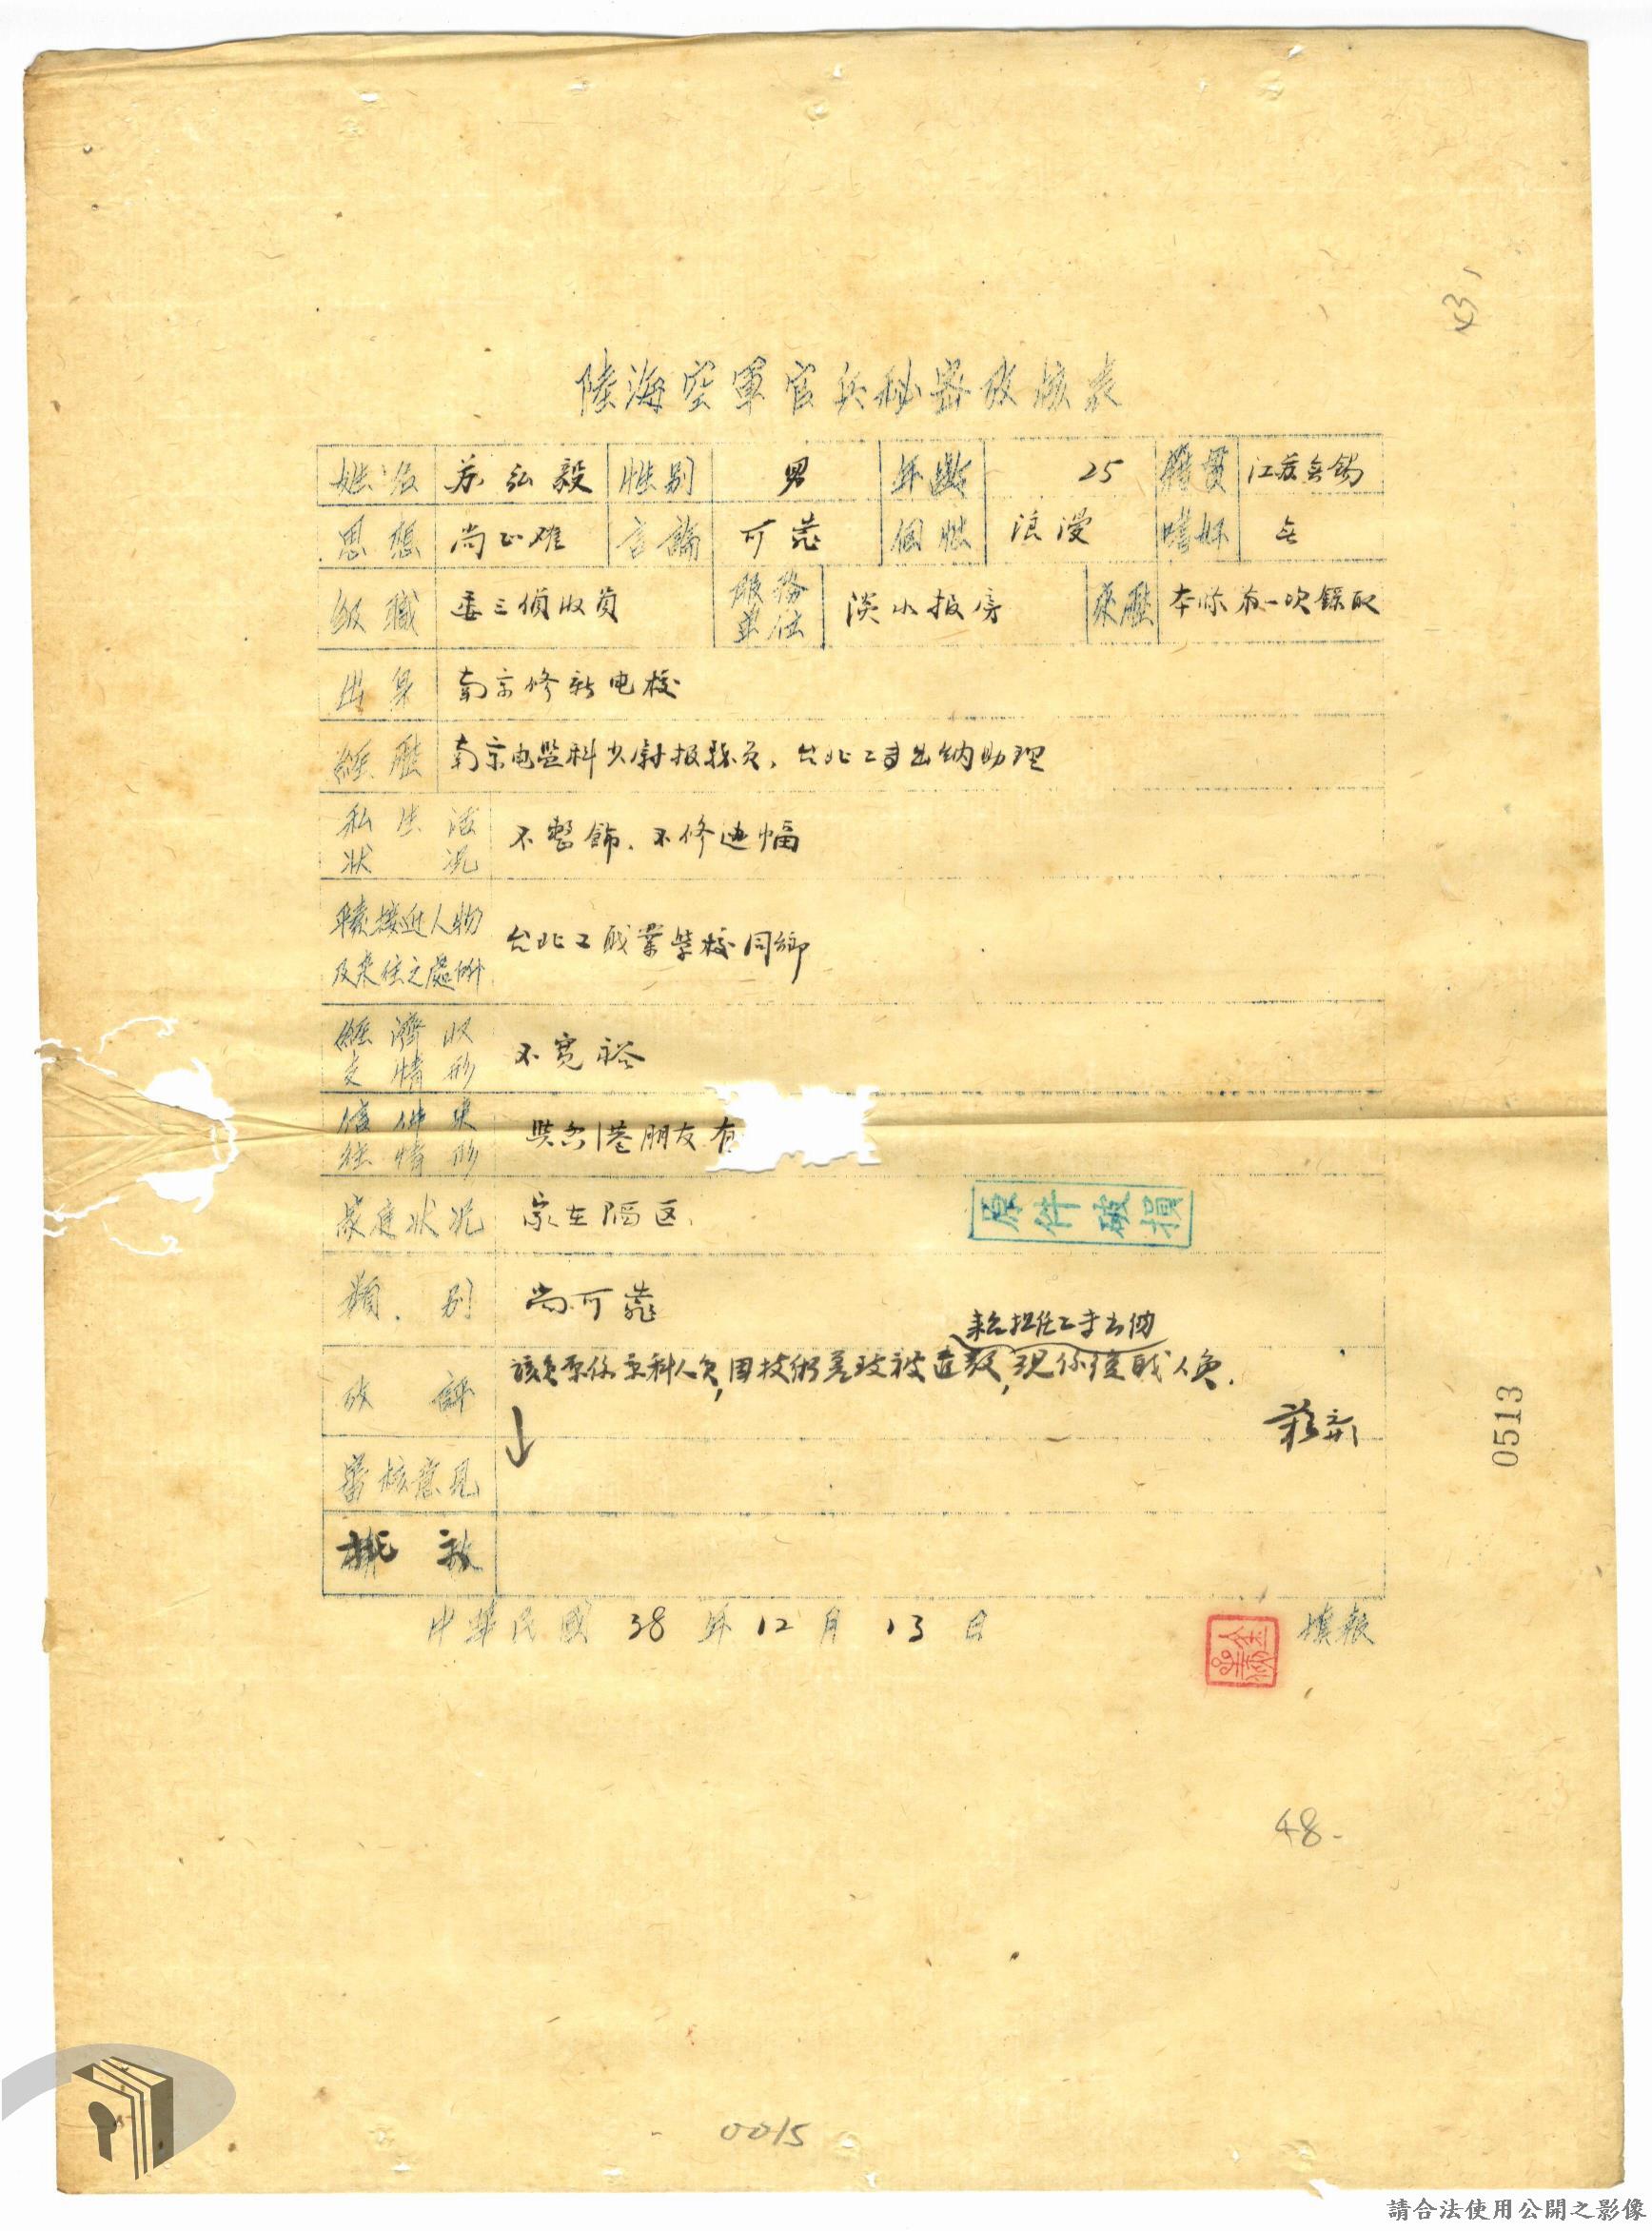 43
陸海空軍官兵秘密攷核表
姓名 苏弘毅 性别 男 年齡 25 籍貫 江苏無錫
思想 尚正確 言論 可靠 個性 浪漫 嗜好 無
級職 委三偵收員 服務單位 淡水报房 來歷 本际第一次錄取
出身 南京修新电校
經歷 南京电监科少尉报務員，台北工専出納助理
私生活
狀況 不整飾．不修边幅
職接近人物
及來往之處所 台北工職業学校同鄉
經濟收
支情形 不寬裕
信件來
往情形 與香港朋友有
家庭狀况 家在陷区
原件破損
類别 尚可靠
來台担任工専出納
攷評 該員原係京科人員，因技術差致被遣散，現係復職人員．
審核意見
批
中華民國38年12月13日 填報
0513
48-
0015
請合法使用公開之影像